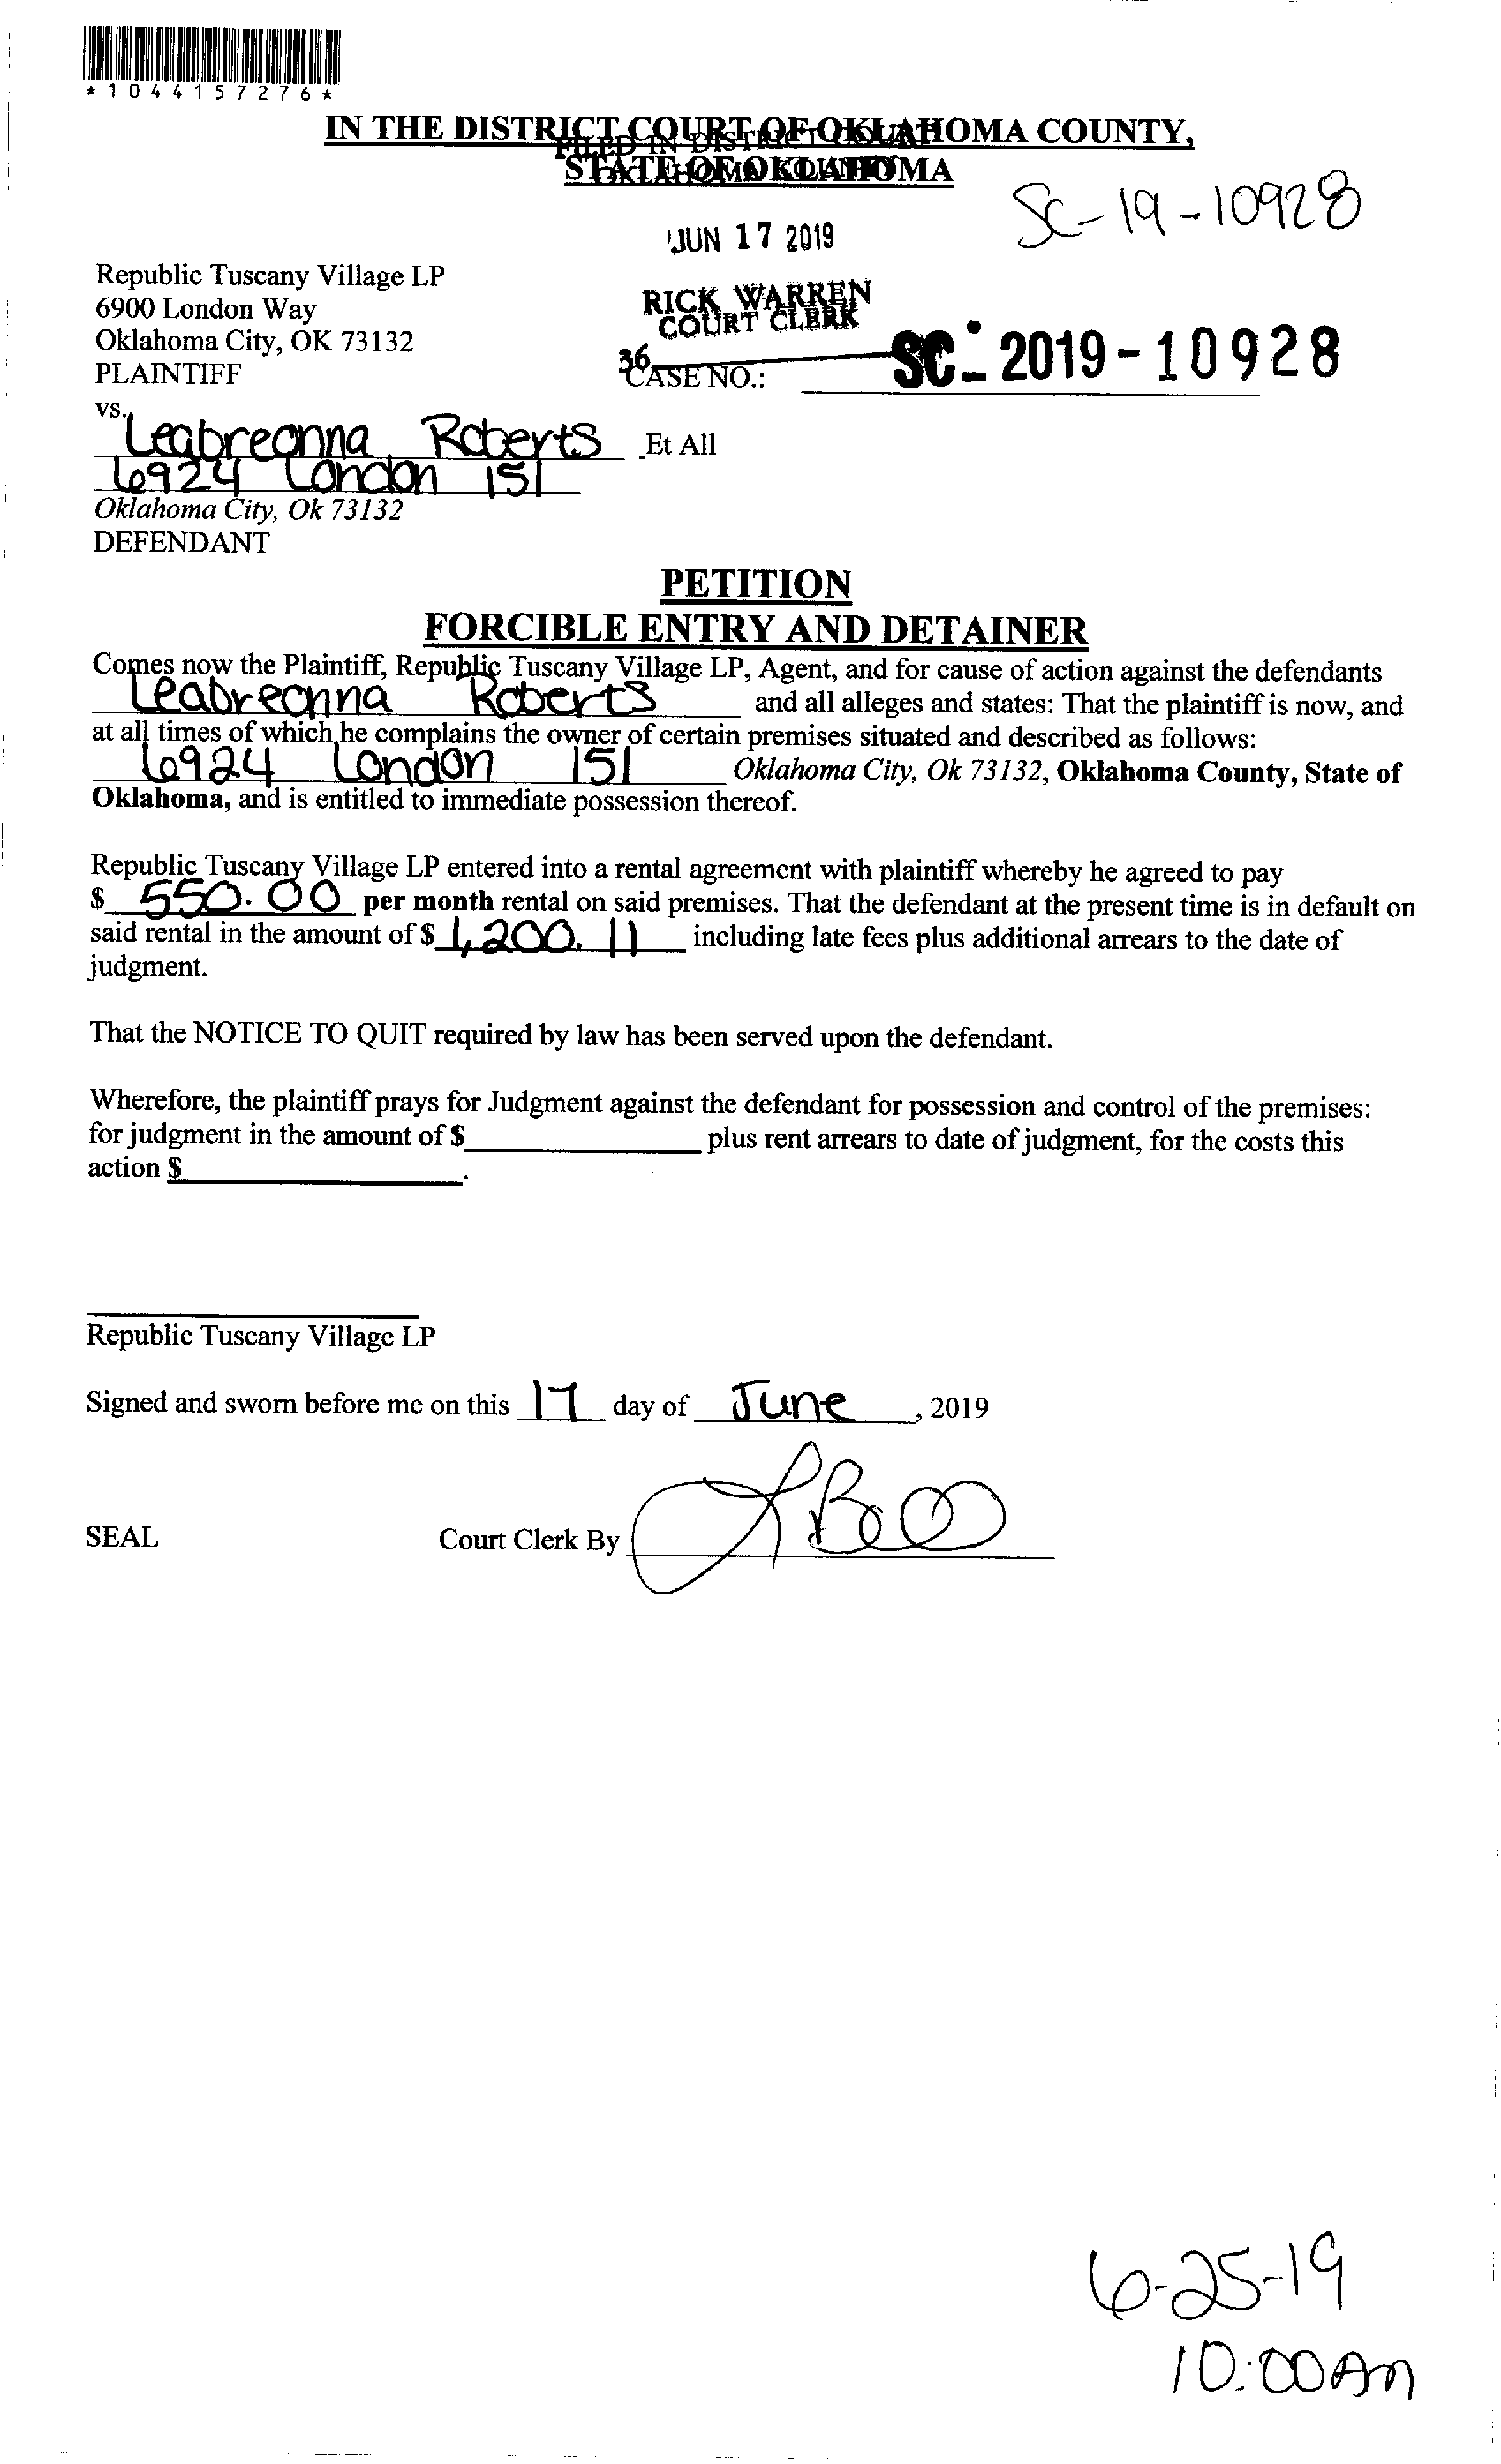 *1044157276*
IN THE DISTRICT COURT OF OKLAHOMA COUNTY,
FILED IN DISTRICT COURT
STATE OF OKLAHOMA
SC-19-10928
JUN 17 2019
Republic Tuscany Village LP
6900 London Way
Oklahoma City, OK 73132
PLAINTIFF
RICK WARREN
COURT CLERK
36
CASE NO.: SC-2019-10928
vs.
Leabreanna Roberts Et All
6924 London 151
Oklahoma City, Ok 73132
DEFENDANT
PETITION
FORCIBLE ENTRY AND DETAINER
Comes now the Plaintiff, Republic Tuscany Village LP, Agent, and for cause of action against the defendants
Leabreanna Roberts and all alleges and states: That the plaintiff is now, and
at all times of which he complains the owner of certain premises situated and described as follows:
6924 London 151 Oklahoma City, Ok 73132, Oklahoma County, State of
Oklahoma, and is entitled to immediate possession thereof.
Republic Tuscany Village LP entered into a rental agreement with plaintiff whereby he agreed to pay
$ 550.00 per month rental on said premises. That the defendant at the present time is in default on
said rental in the amount of $ 1,200.11 including late fees plus additional arrears to the date of
judgment.
That the NOTICE TO QUIT required by law has been served upon the defendant.
Wherefore, the plaintiff prays for Judgment against the defendant for possession and control of the premises:
for judgment in the amount of $ plus rent arrears to date of judgment, for the costs this
action $ .
Republic Tuscany Village LP
Signed and sworn before me on this 17 day of June, 2019
SEAL Court Clerk By
6-25-19
10:00Am